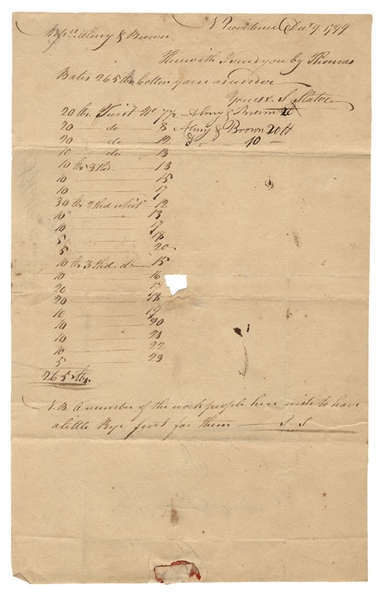 N Providence Dec 9. 1799
Almy & Brown
Herewith I send you by Thomas
Bates 265 lbs Cotton yarn as under
Yours S. Slater
20 lbs Twist No 7 Almy & Brown
20 do 8 Almy & Brown 20 lb
20 do 12 10
10 do 13
10 lbs 13
10 15
10 17
30 lbs 12
10 13
10 17
5 18
5 20
10 lbs 3 15
10 16
20 17
20 18
10 19
10 20
10 21
10 22
5 23
265 lbs
N.B. A number of the work people here wish to have
a little Rye for them S S